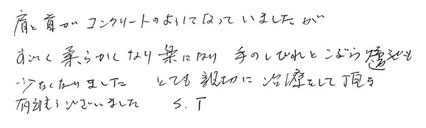 肩と首がコンクリートのようになっていましたが
すごく柔らかくなり楽になり 手のしびれとこぶら
少なくなりました とても親切に治療をして頂き
有難うございました S. T